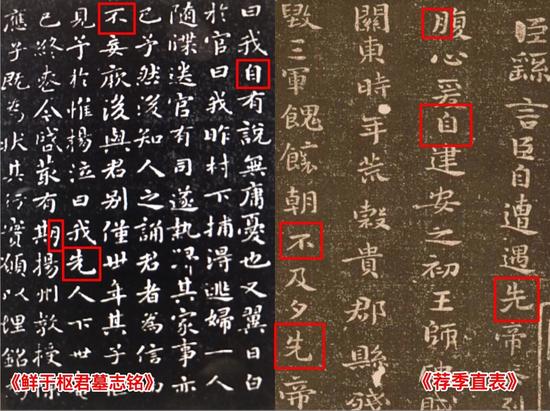 曰我自有說無庸憂也又翼日白
於官曰我昨村下捕得逃婦一人
隨牒送官有司遂執其家事亦
已予然後知人之誦君者為信
不妄厥後與君別僅卅年其子
見予於惟揚泣曰我先人下世
已終令啓菆有期揚州教授
應予既為狀其行實願以埋銘
《鲜于枢君墓志铭》
臣繇言臣自遭遇先帝
腹心爰自建安之初王師
關東時年荒穀貴郡縣殘
毀三軍餽饟朝不及夕先帝
《荐季直表》